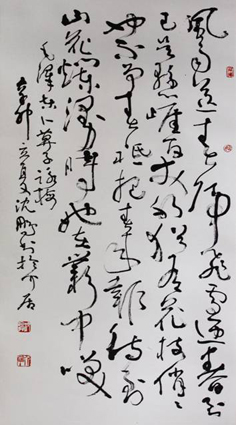 風雨送春歸飛雪迎春到
已是懸崖百丈冰猶有花枝俏〻
也不爭春只把春來報待到
山花爛漫時她在叢中笑
毛澤東卜算子詠梅
立夏沈鵬書於介居